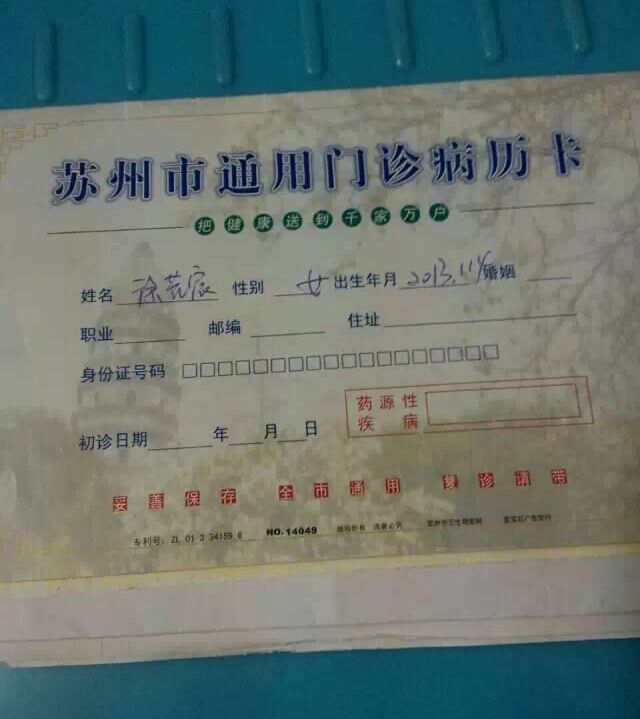 苏州市通用门诊病历卡
把健康送到千家万户
姓名 徐艺宸 性别 女 出生年月 2013.11.4 婚姻
职业 邮编 住址
身份证号码 □□□□□□□□□□□□□□□□□□
初诊日期 年 月 日
药源性
疾病
妥善保存 全市通用 复诊请带
专利号: ZL 01 3 34159 6 NO.14049 版权所有 违者必究 苏州市卫生局监制